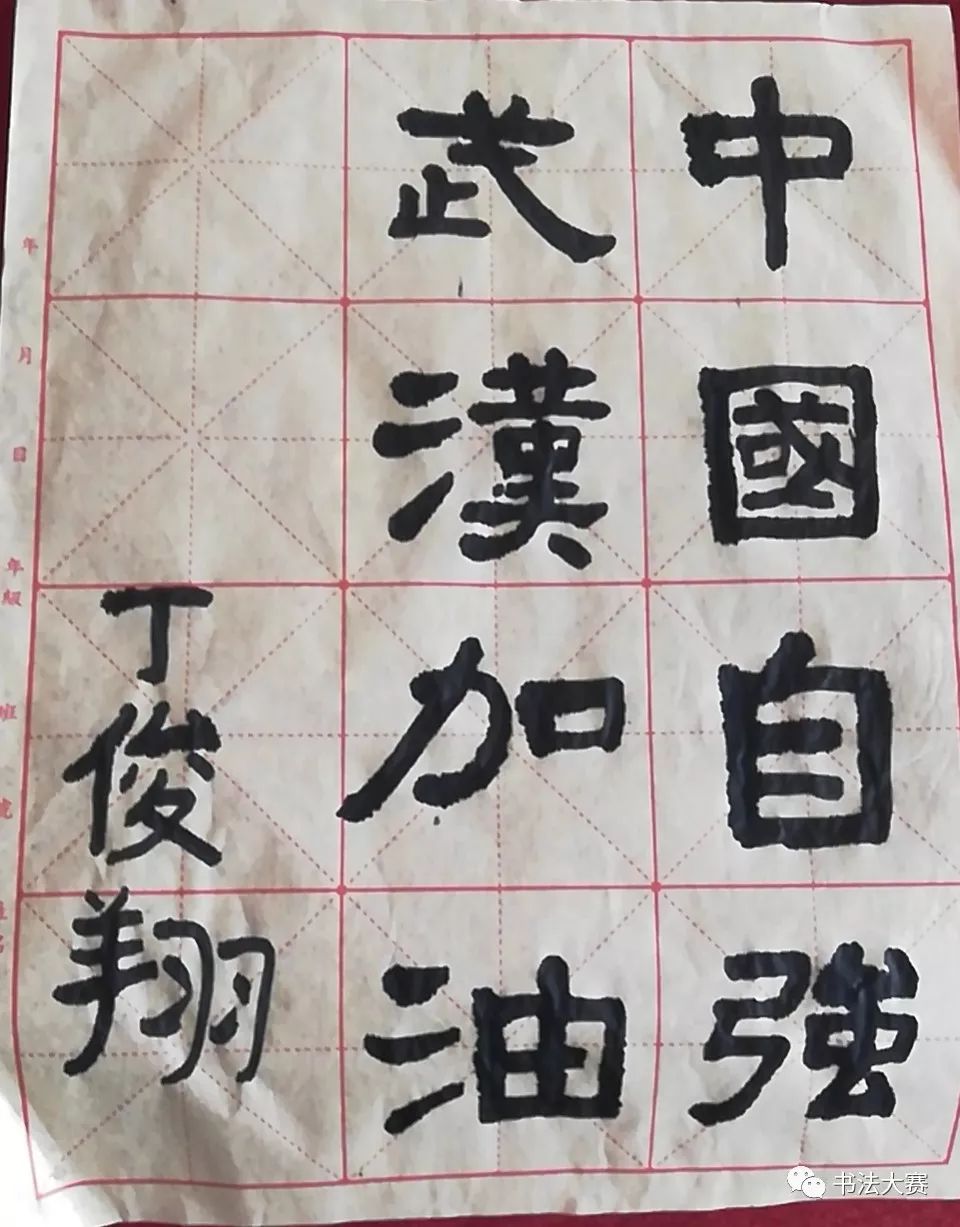 中國自強
武漢加油
丁俊翔
年 月 日 年級 班 號 姓名
书法大赛